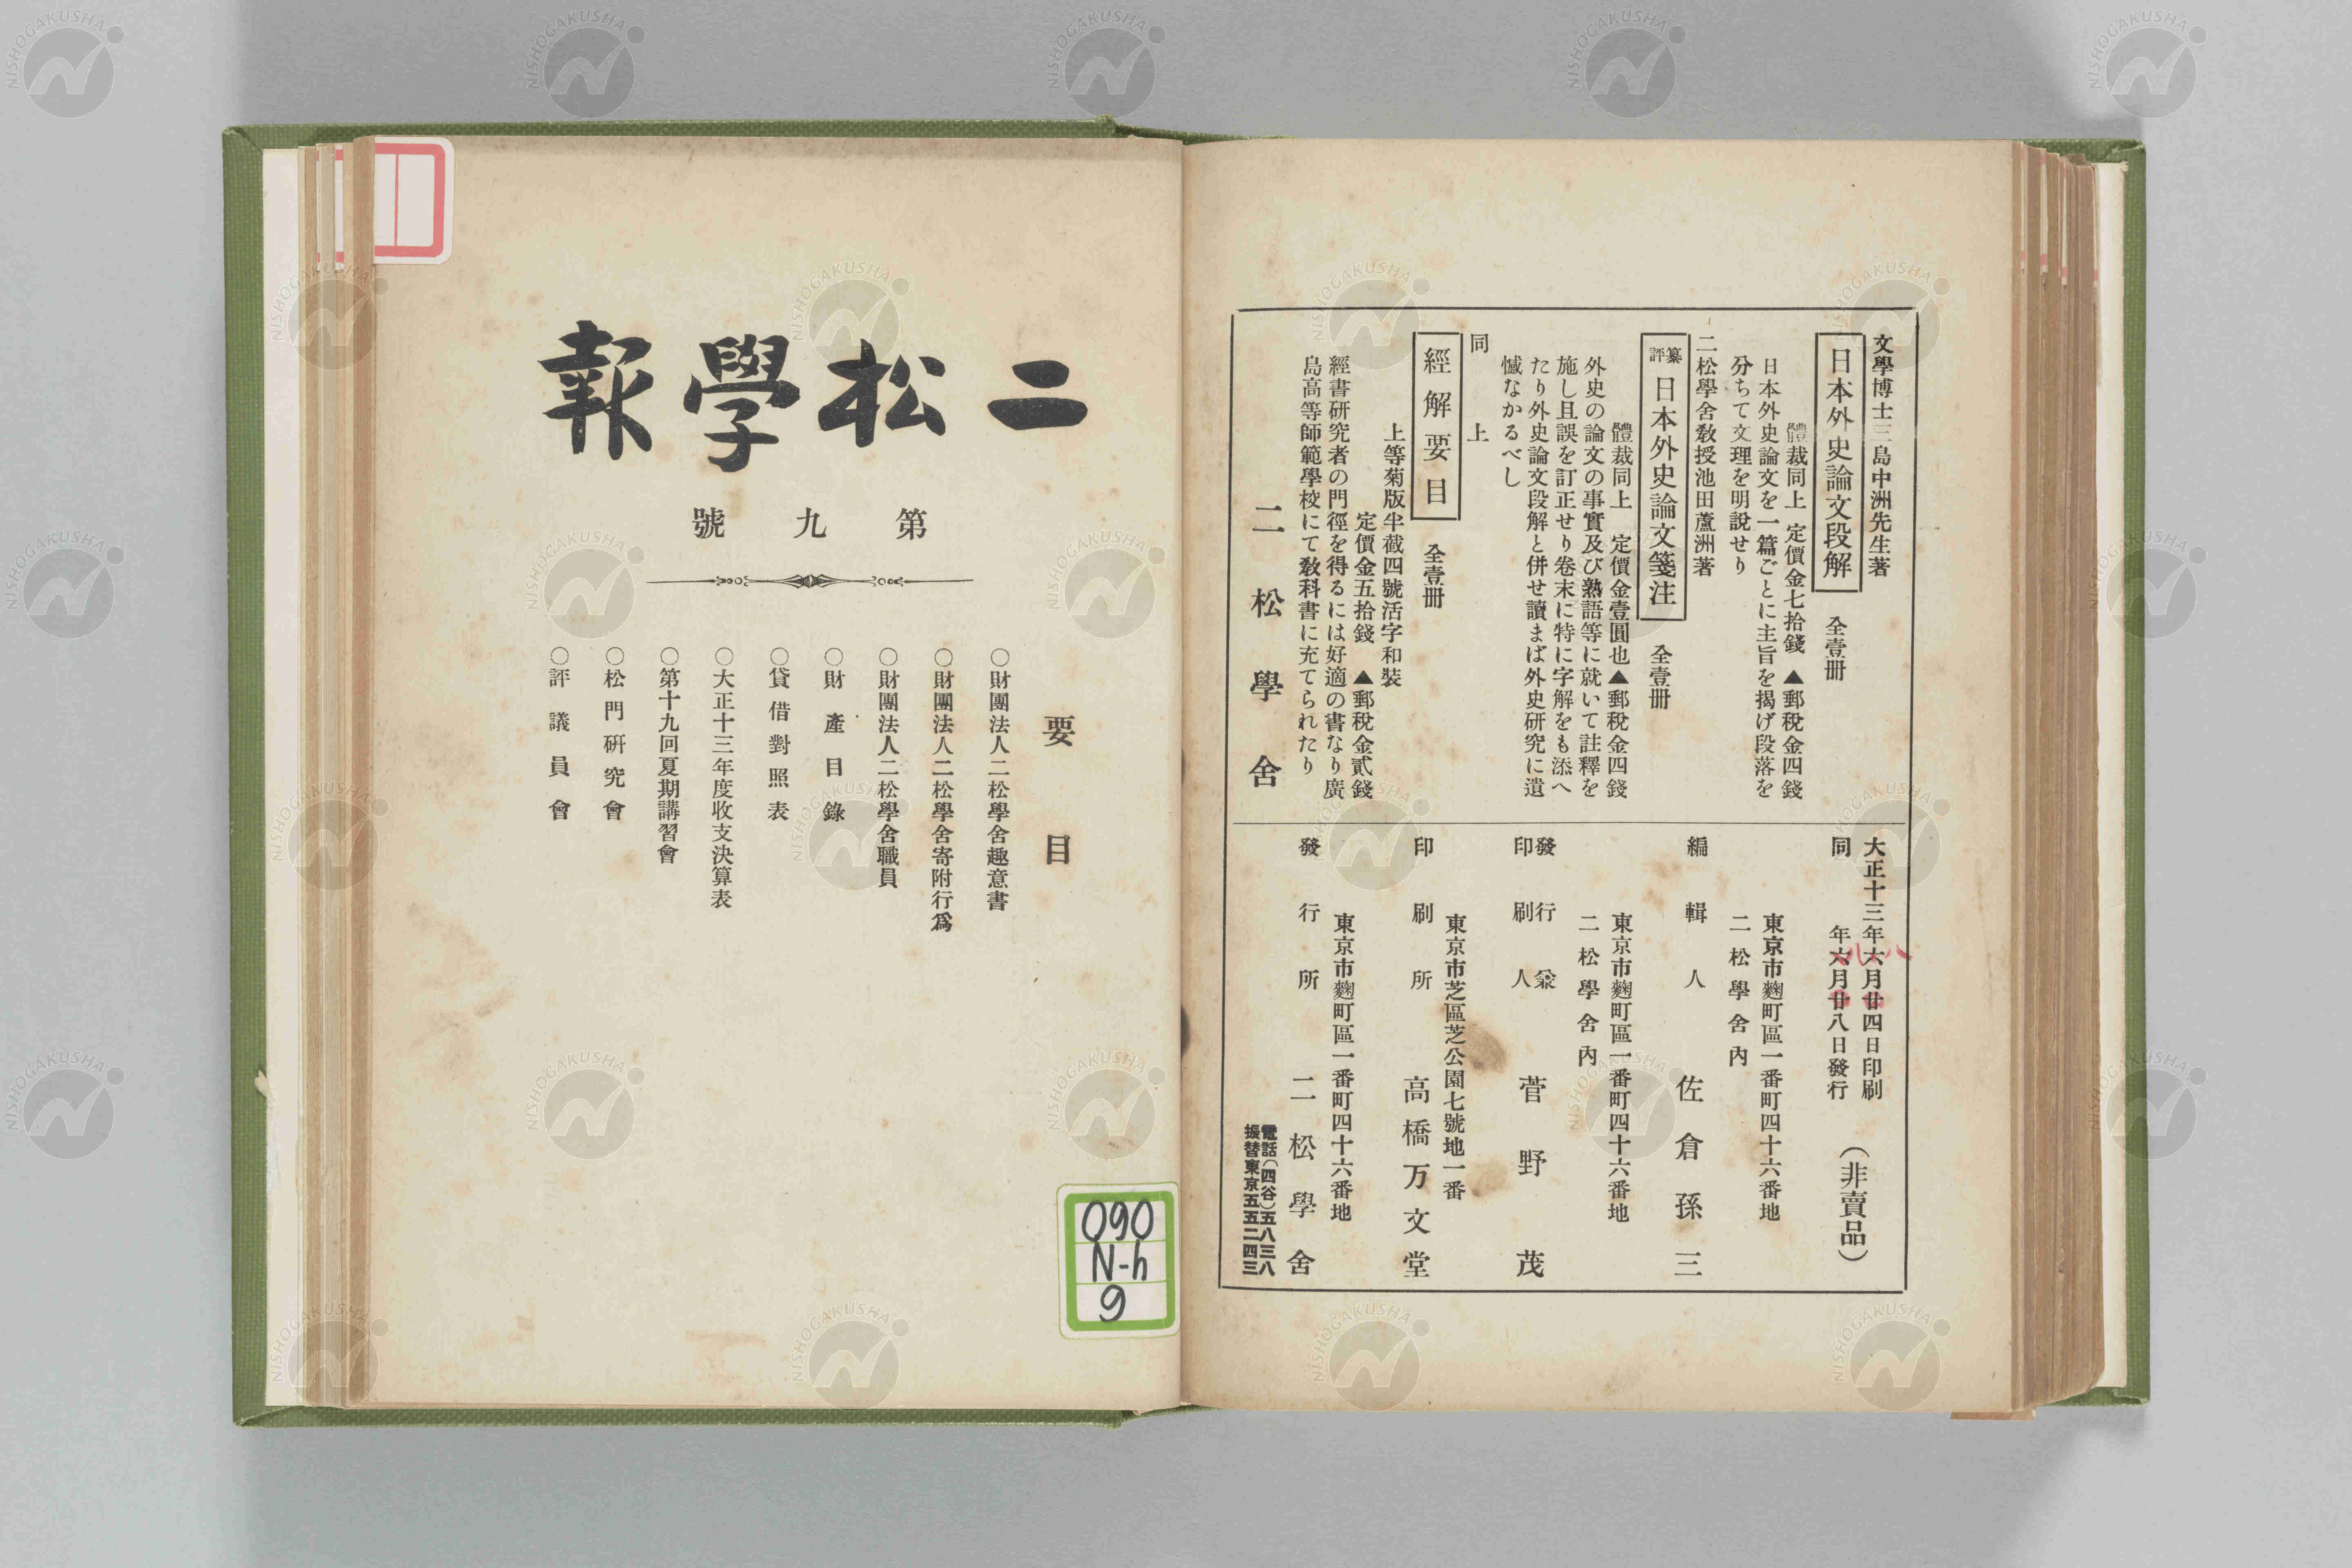 文學博士三島中洲先生著
日本外史論文段解 全壹冊
體裁同上 定價金七拾錢 ▲郵稅金四錢
日本外史論文を一篇ごとに主旨を揭げ段落を
分ちて文理を明說せり
二松學舍敎授池田蘆洲著
纂評 日本外史論文箋注 全壹冊
體裁同上 定價金壹圓也▲郵稅金四錢
外史の論文の事實及び熟語等に就いて註釋を
施し且誤を訂正せり卷末に特に字解をも添へ
たり外史論文段解と併せ讀まば外史研究に遺
憾なかるべし
同上
經解要目 全壹冊
上等菊版半截四號活字和裝
定價金五拾錢 ▲郵稅金貳錢
經書硏究者の門徑を得るには好適の書なり廣
島高等師範學校にて敎科書に充てられたり
二松學舍
大正十三年六月廿四日印刷
同年六月廿八日發行
八
八
(非賣品)
東京市麴町區一番町四十六番地
二松學舍內
編輯人 佐倉孫三
東京市麴町區一番町四十六番地
二松學舍內
發行兼
印刷人 菅野茂
東京市芝區芝公園七號地一番
印刷所 高橋万文堂
東京市麴町區一番町四十六番地
發行所 二松學舍
電話(四谷)五八三八
振替東京五五二四三
二松學報
第九號
要目
○財團法人二松學舍趣意書
○財團法人二松學舍寄附行爲
○財團法人二松學舍職員
○財產目錄
○貸借對照表
○大正十三年度收支決算表
○第十九回夏期講習會
○松門硏究會
○評議員會
090
N-h
9
NISHOGAKUSHA